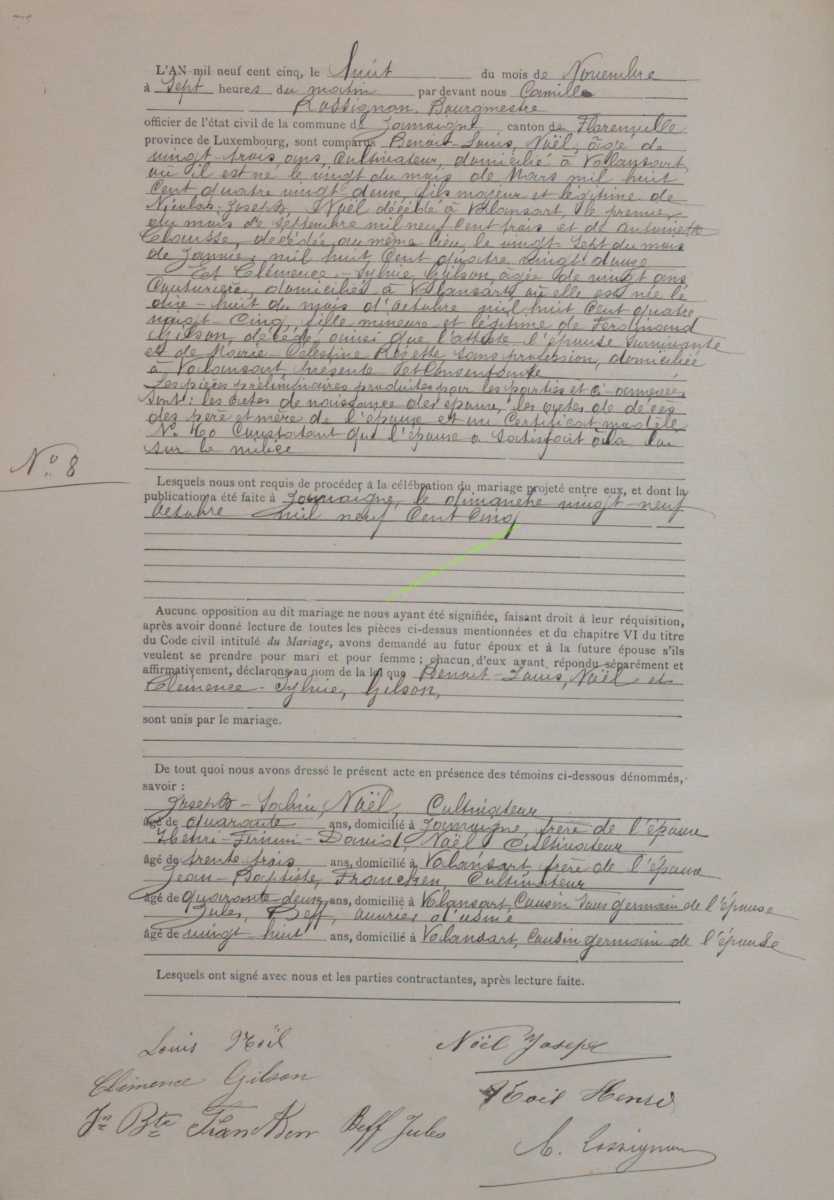 L'AN mil neuf cent cinq, le huit du mois de Novembre
à sept heures du matin par devant nous Camille
Rossignon, Bourgmestre
officier de l'état civil de la commune de Jamoigne, canton de Florenville
province de Luxembourg, sont comparus Benoit-Louis, Noël, âgé de
vingt-trois ans, Cultivateur, domicilié à Valansart
où il est né le vingt du mois de Mars mil huit
Cent quatre vingt deux, fils majeur et légitime de
Nicolas-Joseph, Noël décédé à Valansart, le premier
du mois de Septembre mil neuf Cent trois et de Antoinette
décédée au même lieu, le vingt Sept du mois
de Janvier mil huit Cent quatre vingt douze
Et Clémence-Sylvie, Gilson, agée de vingt ans
Couturière, domiciliée à Valansart, où elle est née le
dix-huit du mois d'Octobre mil huit Cent quatre
vingt-Cinq, fille mineure et légitime de Ferdinand
Gilson, décédé, ainsi que l'atteste l'épouse survivante
et de Marie-Célestine Rosette Sans profession, domiciliée
à Valansart, présente et Consentante
Les pièces préliminaires produites par les parties et ci-annexées
Sont: les actes de naissance des époux, les actes de décès
des père et mère de l'époux et un Certificat modèle
N° Constatant que l'époux a Satisfait à la loi
sur la milice
N° 8
Lesquels nous ont requis de procéder à la célébration du mariage projeté entre eux, et dont la
publication a été faite à Jamoigne, le dimanche vingt-neuf
Octobre mil neuf Cent Cinq
Aucune opposition au dit mariage ne nous ayant été signifiée, faisant droit à leur réquisition,
après avoir donné lecture de toutes les pièces ci-dessus mentionnées et du chapitre VI du titre
du Code civil intitulé du Mariage, avons demandé au futur époux et à la future épouse s'ils
veulent se prendre pour mari et pour femme ; chacun d'eux ayant répondu séparément et
affirmativement, déclarons au nom de la loi que Benoit-Louis, Noël et
Clémence-Sylvie, Gilson,
sont unis par le mariage.
De tout quoi nous avons dressé le présent acte en présence des témoins ci-dessous dénommés,
savoir :
Joseph-Sabin, Noël, Cultivateur
âgé de quarante ans, domicilié à Jamoigne, frère de l'époux
Henri-Firmin-Daniel, Noël, Cultivateur
âgé de trente trois ans, domicilié à Valansart, frère de l'époux
Jean-Baptiste, Francken, Cultivateur
âgé de quarante-deux ans, domicilié à Valansart, Cousin Sous germain de l'Épouse
Jules, Beff, ouvrier d'usine
âgé de vingt huit ans, domicilié à Valansart, Cousin germain de l'épouse
Lesquels ont signé avec nous et les parties contractantes, après lecture faite.
Louis Noël Noël Joseph
Clémence Gilson Noël Henri
Jn Bte Francken Beff Jules
C. Rossignon